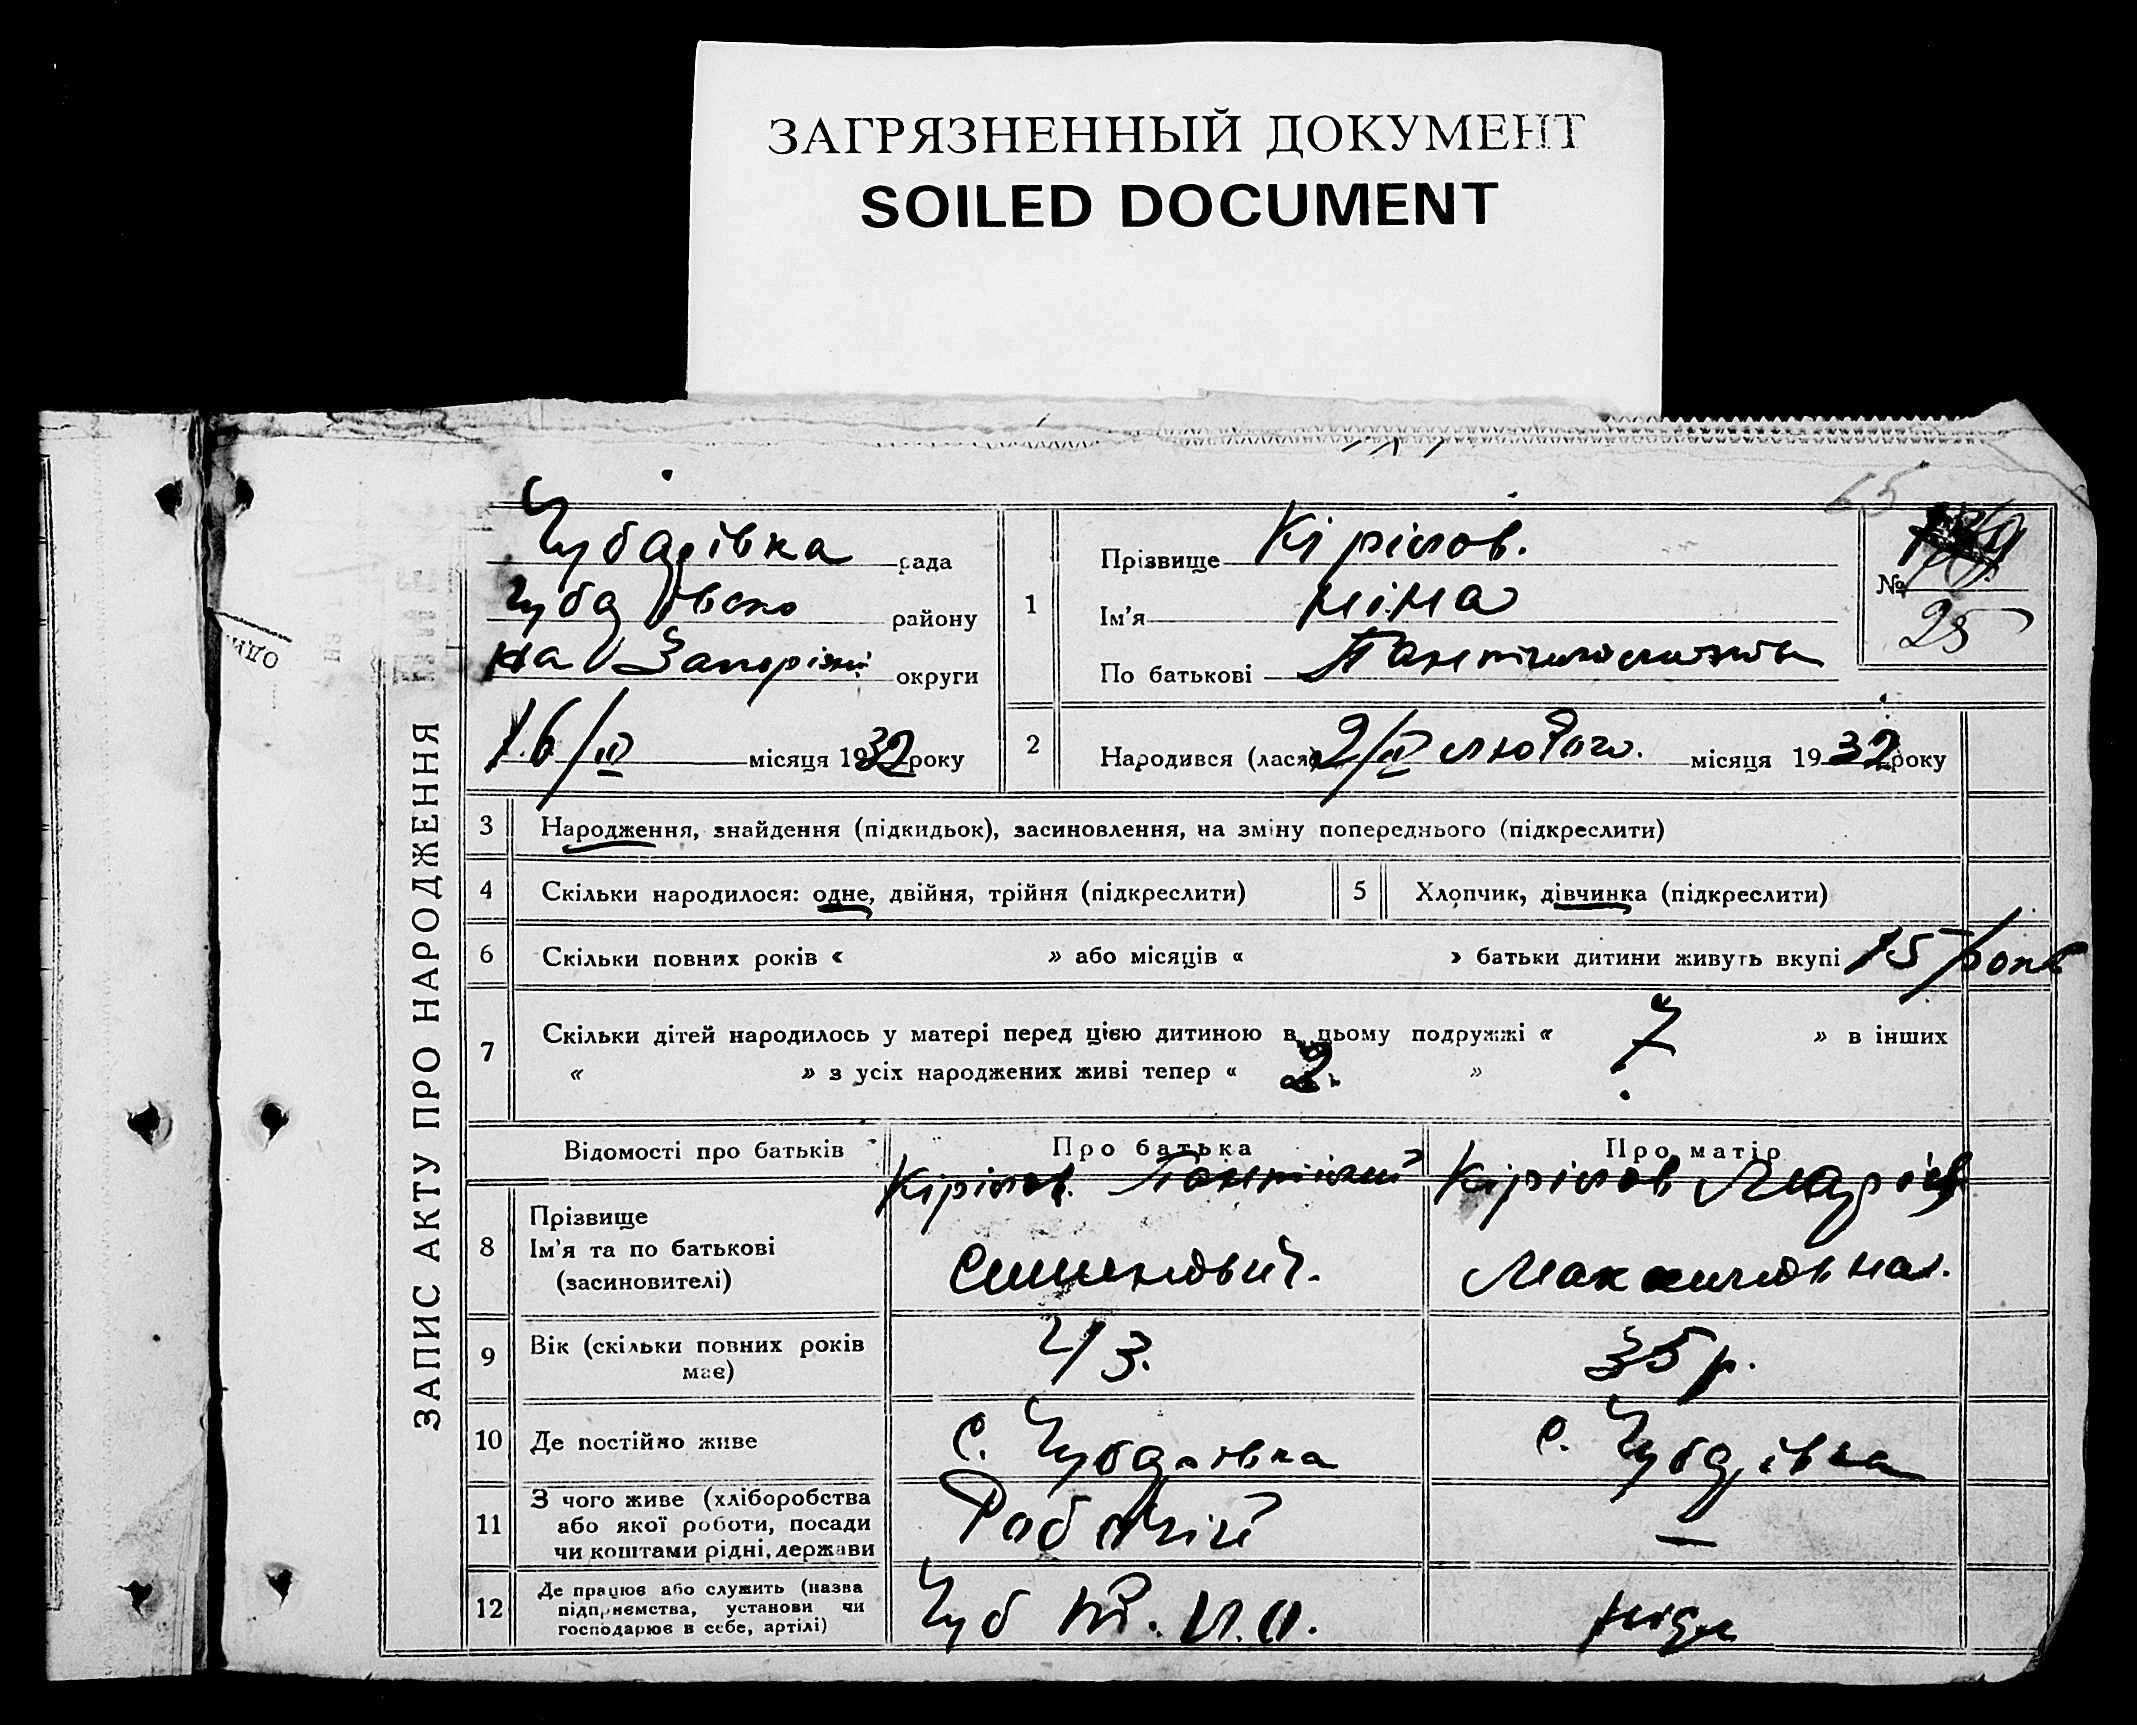 ЗАГРЯЗНЕННЫЙ ДОКУМЕНТ
SOILED DOCUMENT
65
ЗАПИС АКТУ ПРО НАРОДЖЕННЯ
Чубарівка рада
району
на Запоріжжі округи
16/IV місяця 1932 року
1
Прізвище Кірілов.
Ім'я Ніна
По батькові
№
25
2
Народився (лася) 2/II лютого. місяця 1932 року
3 Народження, знайдення (підкидьок), засиновлення, на зміну попереднього (підкреслити)
4 Скільки народилося: одне, двійня, трійня (підкреслити)
5 Хлопчик, дівчинка (підкреслити)
6 Скільки повних років « » або місяців « » батьки дитини живуть вкупі 15 років
7 Скільки дітей народилось у матері перед цією дитиною в цьому подружжі « 7 » в інших
« » з усіх народжених живі тепер « 2. »
Відомості про батьків
Про батька
Про матір
8 Прізвище
Ім'я та по батькові
(засиновителі)
Кірілов.
Кірілов Марія
9 Вік (скільки повних років
має)
43.
35 р.
10 Де постійно живе
с. Чубарівка
с. Чубарівка
11 З чого живе (хліборобства
або якої роботи, посади
чи коштами рідні, держави
Рабочій
—
12 Де працює або служить (назва
підприємства, установи чи
господарює в себе, артілі)
Чуб